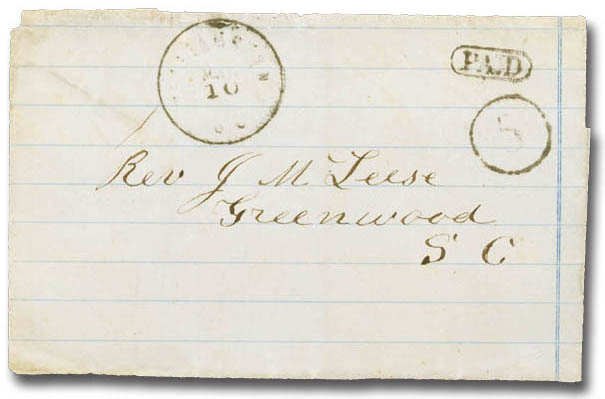 10
PAID
Rev J M Leese
Greenwood
S C